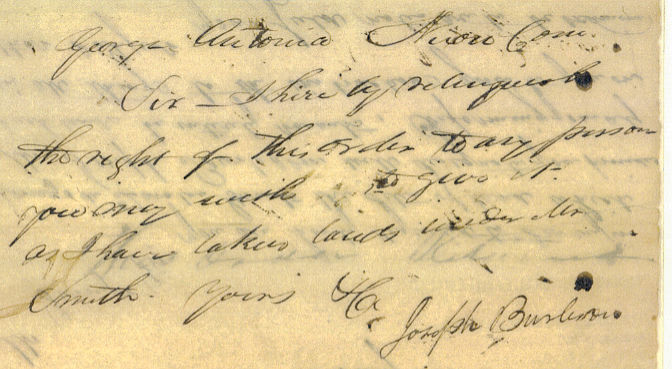 George Antonia Nixon Com.
Sir – I here by relinquish
the right of this order to any person
you may wish to give it
as I have taken lands under Mr
Smith. yours &c
Joseph Burleson